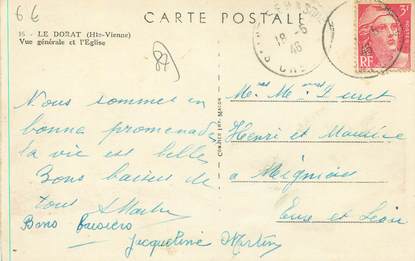 66
CARTE POSTALE
15 - LE DORAT (Hte-Vienne)
Vue générale et l'Eglise
87
18-6
46
3F
POSTES
RF
Nous sommes en
bonne promenade
la vie est belle
Bons baisers de
tous
Bons baisers
Jacqueline Martin
Duret
Henri et Maurice
à Mignières
Eure et Loir